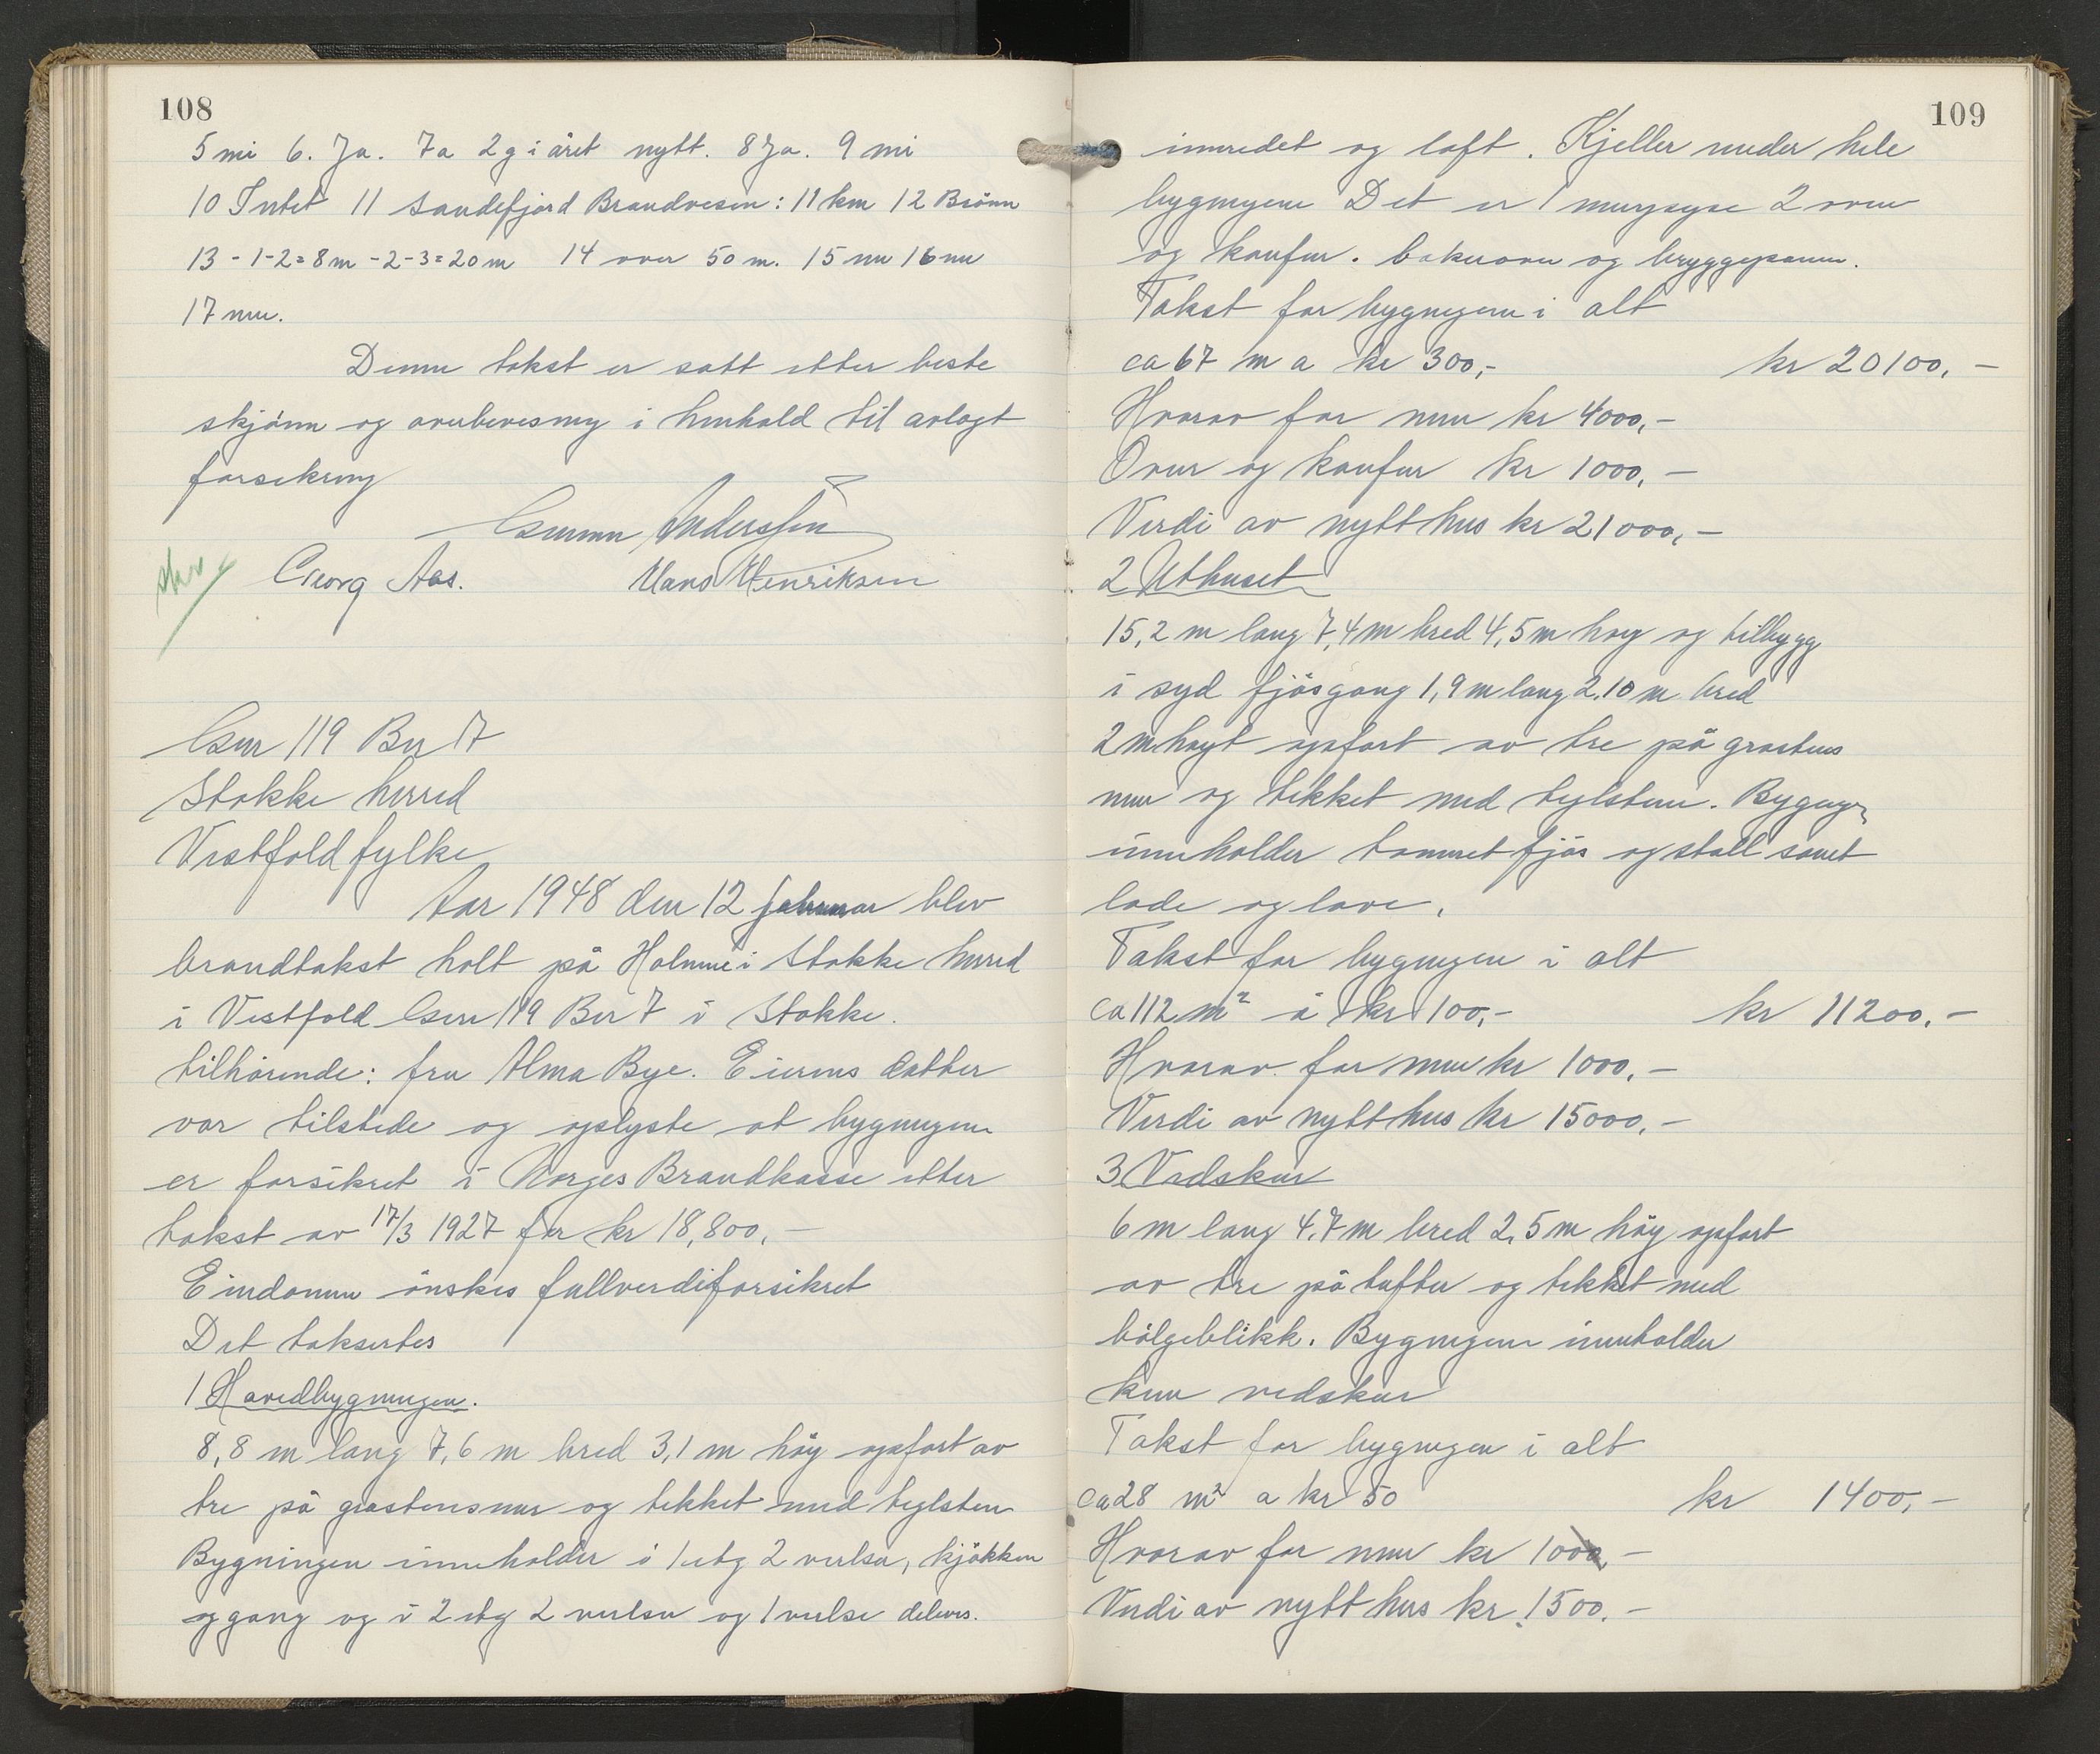 108
5 nei 6. Ja. 7a 2 g i året nytt. 8 Ja. 9 nei
10 Intet 11 Sandefjord Brandvesen: 11 km 12 Brönn
13 - 1-2 = 8 m - 2-3 = 20 m 14 over 50 m. 15 nei 16 nei
17 nei.
Denne takst er satt etter beste
skjönn og overbevisning i henhold til avlagt
forsikring
Gunnar Anderssen
Georg Aas. Hans Henriksen
Gnr 119 Bnr 7
Stokke herred
Vestfold fylke
Aar 1948 den 12 februar blev
brandtakst holt på Holmene i Stokke herred
i Vestfold Gnr 119 Bnr 7 i Stokke.
tilhörende: fru Alma Bye. Eierens datter
var tilstede og oplyste at bygningen
er forsikret i Norges Brandkasse etter
takst av 17/3 1927 for kr 18,800,-
Eiendommen önskes fullverdiforsikret
Det taksertes
1 Hovedbygningen.
8,8 m lang 7,6 m bred 3,1 m höy opfört av
tre på gråstensmur og tekket med teglsten
Bygningen inneholder i 1 etg 2 verlser, kjökken
og gang og i 2 etg 2 verlser og 1 verlse delvis.
109
innredet og loft. Kjeller under hele
bygningen Det er 1 murpipe 2 ovner
og komfyr. bakerovn og bryggepanne.
Takst for bygningen i alt
ca 67 m a kr 300,- kr 20100,-
Hvorav for mur kr 4000,-
Ovner og komfyr kr 1000,-
Verdi av nytt hus kr 21000,-
2 Uthuset
15,2 m lang 7,4 m bred 4,5 m höy og tilbygg
i syd fjösgang 1,9 m lang 2,10 m bred
2 m höyt opfört av tre på gråstens
mur og tekket med teglsten. Bygningen
inneholder tömret fjös og stall samt
lade og låve.
Takst for bygningen i alt
ca 112 m² á kr 100,- kr 11200,-
Hvorav for mur kr 1000,-
Verdi av nytt hus kr 15000,-
3 Vedskur
6 m lang 4,7 m bred 2,5 m höy opfört
av tre på tufter og tekket med
bölgeblikk. Bygningen inneholder
kun vedskur
Takst for bygningen i alt
ca 28 m² a kr 50 kr 1400,-
Hvorav for mur kr 100,-
Verdi av nytt hus kr 1500,-